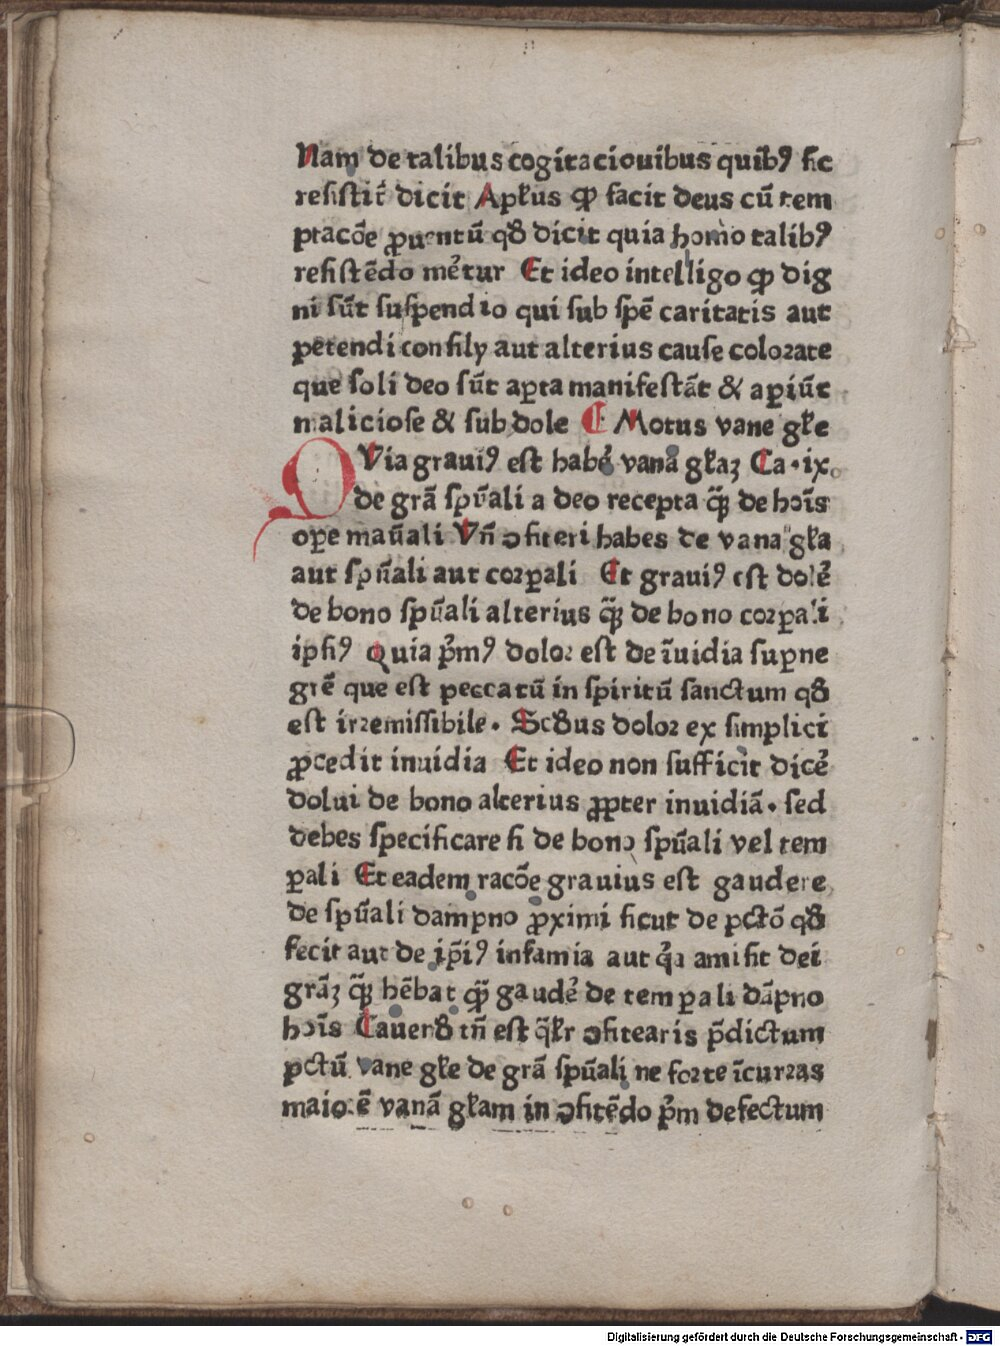 Nam de talibus cogitaciouibus quibꝰ ſic
reſiſtit᷑ dicit Apl̓us ꝙ facit deus cū tem
ptacōe ꝓuentū qđ dicit quia homo talibꝰ
reſiſtēdo me᷑tur Et ideo intelligo ꝙ dig
ni sūt ſuſpendio qui ſub ſpē caritatis aut
petendi conſily aut alterius cauſe coloꝛate
que ſoli deo ſūt aꝑta manifeſtāt & aꝑiūt
maliciose & ſub dole ¶ Motus vane gl̓e
QVia grauiꝰ eſt habe᷑ vanā gl̓aꝫ Ca·ix.
de grā ſpūali a deo recepta q̄ꝫ de hoīs
oꝑe maūali Vn̄ ꝯfiteri habes de vana gl̓a
aut ſpūali aut coꝛꝑali Et grauiꝰ eſt dole᷑
de bono ſpūali alterius q̄ꝫ de bono coꝛꝑali
ipſiꝰ Quia pͥmꝰ doloꝛ eſt de īuidia ſuꝑne
grē que eſt peccatū in ſpiritū ſanctum qđ
eſt irꝛemiſſibile. Scđus doloꝛ ex ſimplici
ꝓcedit inuidia Et ideo non ſufficit dice᷑
dolui de bono alterius ꝓpter inuidiā. sed
debes ſpecificare ſi de bono ſpūali vel tem
ꝑali Et eadem racōe grauius eſt gaudere
de ſpūali dampno ꝓximi ſicut de pctō qđ
fecit aut de ip̄iꝰ infamia aut qͣa amiſit dei
grāꝫ q̄ꝫ hēbat q̄ꝫ gaude᷑ de temꝑali dāpno
hoīs Cauenđ tn̄ eſt q̄l̓r ꝯfitearis p̄dictum
pctū vane gl̓e de grā ſpūali ne foꝛte īcurꝛas
maioꝛē vanā gl̓am in ꝯfitēdo pͥm defectum
Digitalisierung gefördert durch die Deutsche Forschungsgemeinschaft - DFG